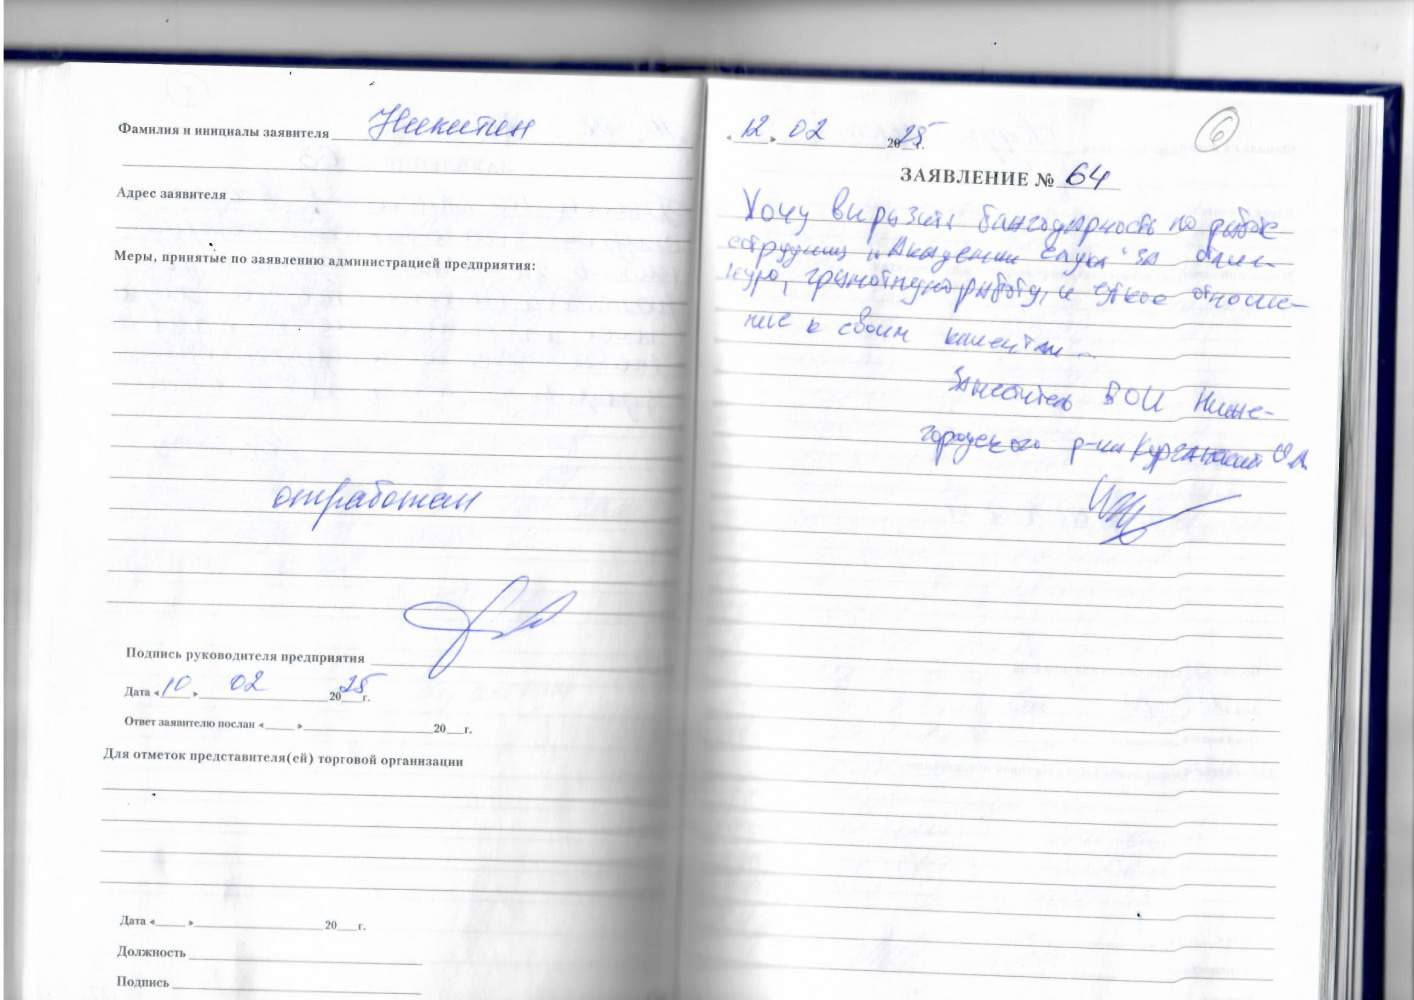 Фамилия и инициалы заявителя Никитин
Адрес заявителя
Меры, принятые по заявлению администрацией предприятия:
отработан
Подпись руководителя предприятия
Дата «10» 02 2025г.
Ответ заявителю послан «    »    20   г.
Для отметок представителя(ей) торговой организации
Дата «    »    20   г.
Должность
Подпись
6
«12» 02 2025г.
ЗАЯВЛЕНИЕ № 64
Хочу выразить благодарность по работе
сотрудниц "Академии слуха" за
грамотную работу, и чуткое отноше-
ние к своим клиентам.
ВОИ Ниже-
городского р-на Курганский